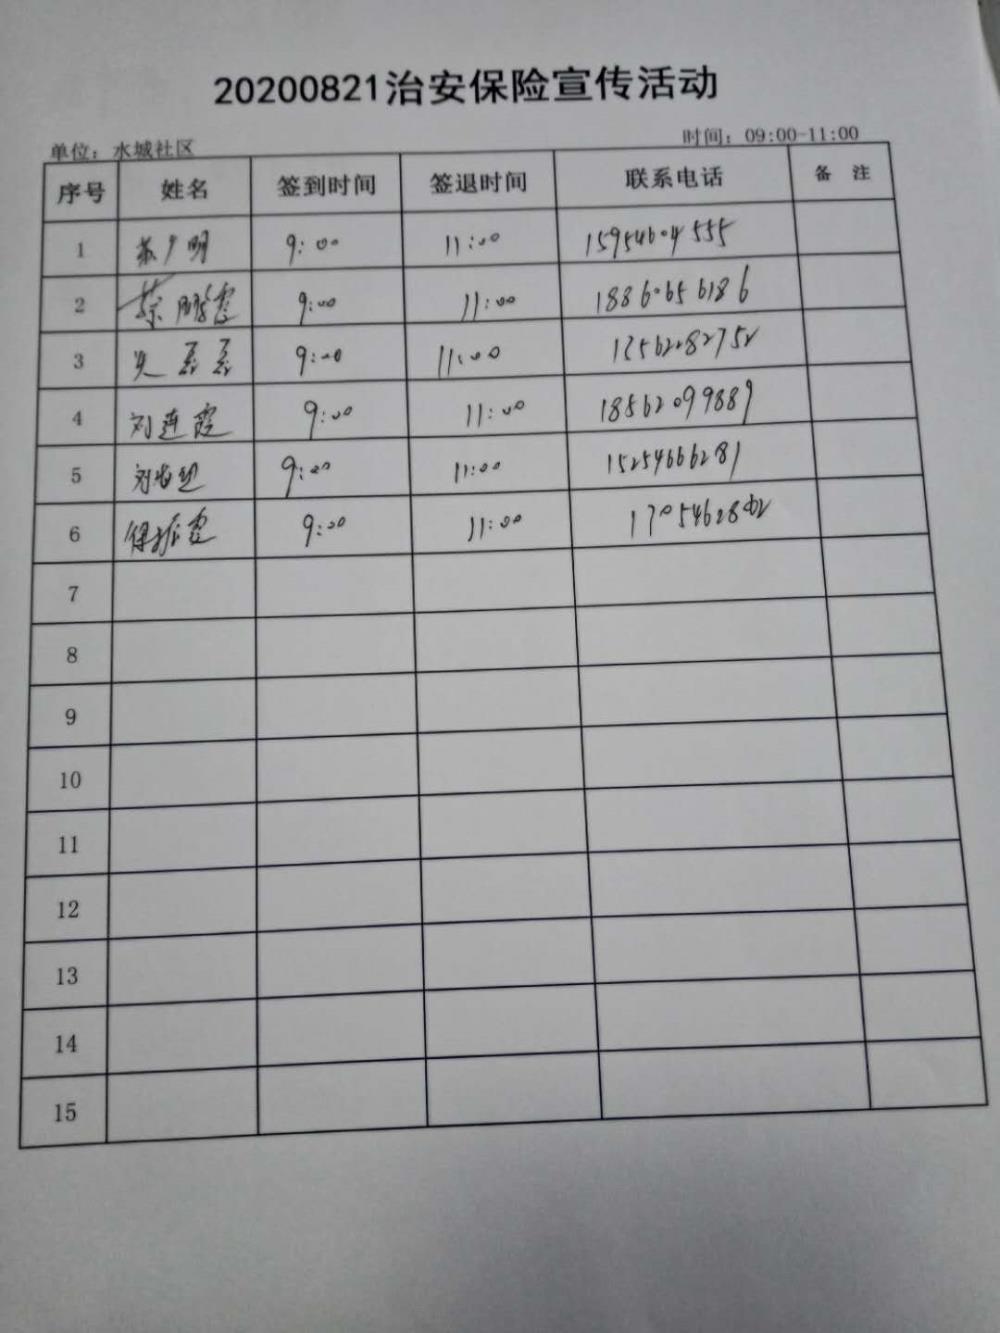 20200821治安保险宣传活动
单位：水城社区 时间：09:00-11:00
序号 姓名 签到时间 签退时间 联系电话 备 注
1 苏广明 9:00 11:00 15954604555
2 9:00 11:00 18860656186
3 9:00 11:00
4 刘连霞 9:00 11:00 18562099889
5 9:00 11:00 15254666281
6 9:00 11:00
7
8
9
10
11
12
13
14
15